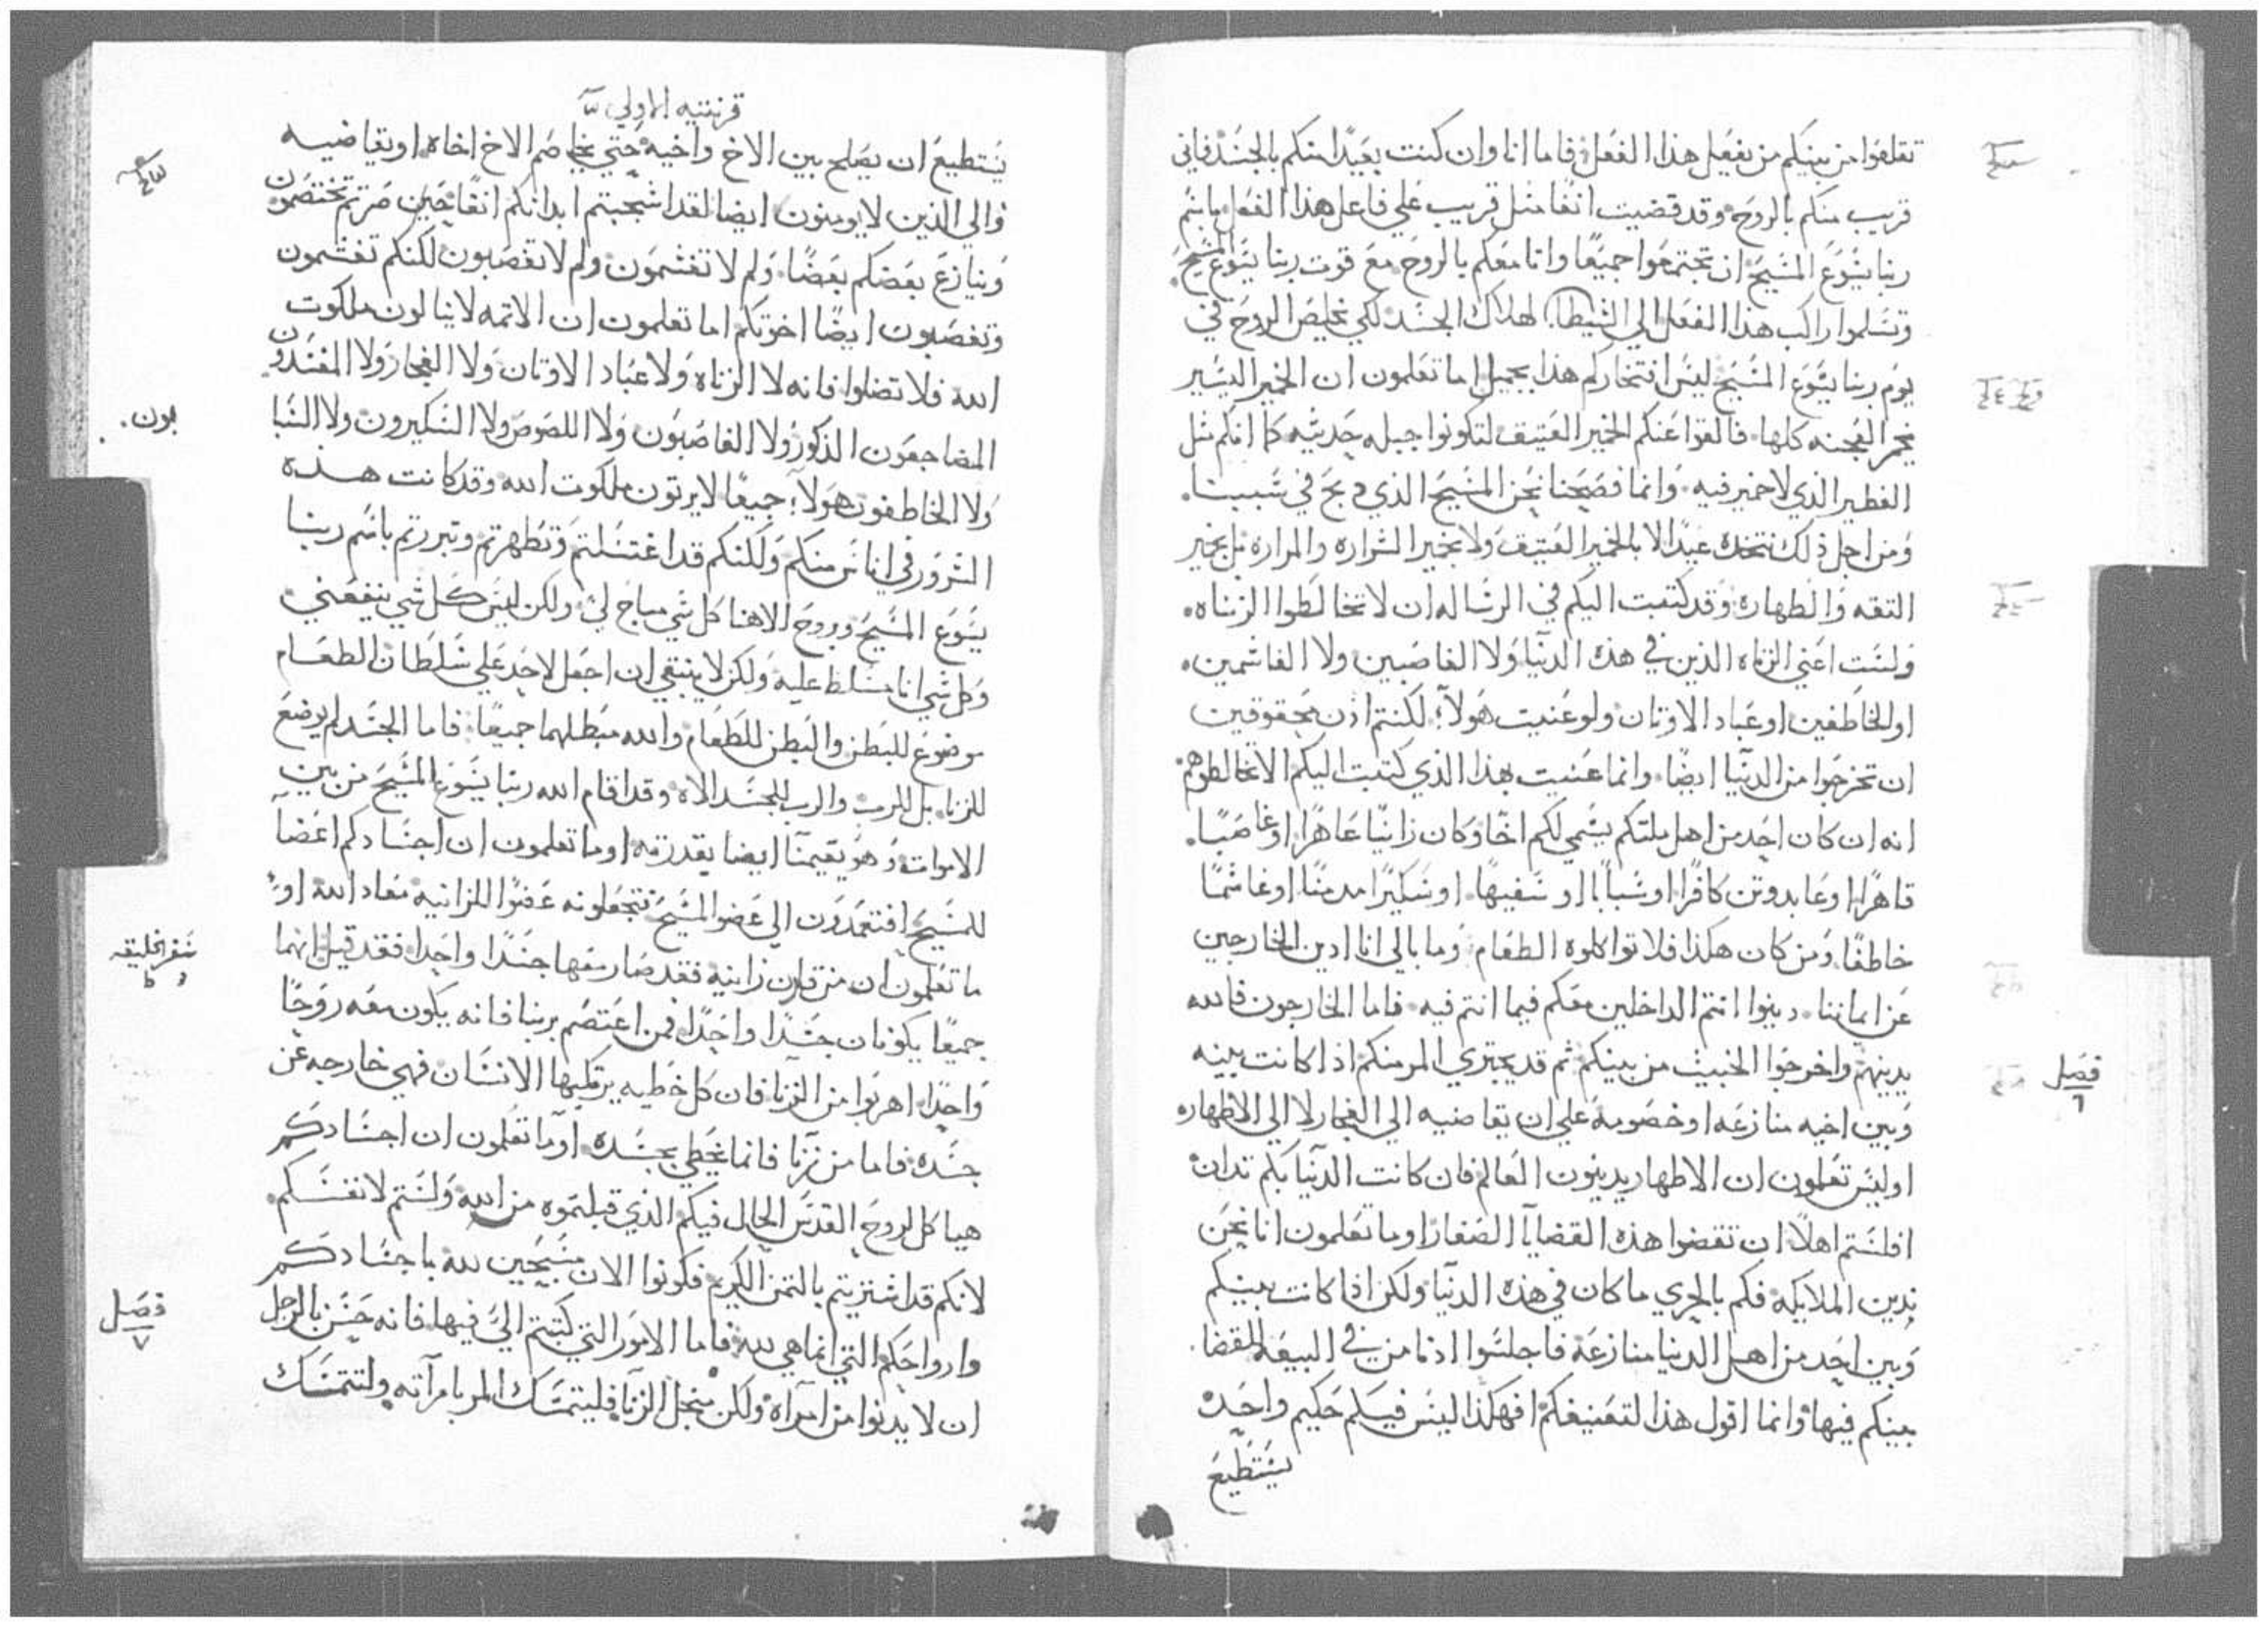 تقلعوا من بينكم من يفعل هذا الفعل فاما انا وان كنت بعيدا منكم بالجسد فاني
قريب منكم بالروح وقد قضيت انفا مثل قريب علي فاعل هذا الفعل باسم
ربنا يسوع المسيح ان تجتمعوا جميعا وانا معكم بالروح مع قوت ربنا يسوع المسيح
وتسلموا راكب هذا الفعل الي الشيطان لهلاك الجسد لكي تخلص الروح في
يوم ربنا يسوع المسيح ليس افتخاركم هذا بجميل اما تعلمون ان الخمير اليسير
يخمر العجنه كلها فالقوا عنكم الخمير العتيق لتكونوا جبله جديثه كما انكم مثل
الفطير الذي لا خمير فيه وانما فصحنا نحن المسيح الذي دبح في سببنا
ومن اجل ذلك نتخده عيدا لا بالخمير العتيق ولا بخمير الشراره والمراره بل بخمير
التقه والطهاره وقد كتبت اليكم في الرساله ان لا تخالطوا الزناه
ولست اعني الزناه الذين في هذه الدنيا ولا الغاصبين ولا الغاشمين
او الخاطفين او عباد الاوتان ولو عنيت هولاء لكنتم اذن محقوقين
ان تخرجوا من الدنيا ايضا وانما عنيت بهذا الذي كتبت اليكم الا تخالطوهم
انه ان كان احد من اهل ملتكم يسمي لكم اخا وكان زانيا عاهرا او غاصبا
قاهرا او عابد وتن كافرا او سبابا او سفيها او سكيرا مدمنا او غاشما
خاطفا ومن كان هكذا فلا تواكلوه الطعام وما بالي انا ادين الخارجين
عن ايماننا دينوا انتم الداخلين معكم فيما انتم فيه فاما الخارجون فالله
يدينهم واخرجوا الخبيث من بينكم ثم قد يجتري المر منكم اذا كانت بينه
فصل
٦
وبين اخيه منازعه او خصومه علي ان يقاضيه الي الفجار لا الي الاطهار
اوليس تعلمون ان الاطهار يدينون العالم فان كانت الدنيا بكم تدان
افلستم اهلا ان تقضوا هذه القضايا الصغار او ما تعلمون انا نحن
ندين الملايكه فكم بالحري ما كان في هذه الدنيا ولكن اذا كانت بينكم
وبين احد من اهل الدنيا منازعه فاجلسوا ادنا من في البيعه للقضا
بينكم فيها وانما اقول هذا لتعنيفكم افهكذا ليس فيكم حكيم واحد
يستطيع
قرنتيه الاولي
يستطيع ان يصلح بين الاخ واخيه حتي يخاصم الاخ اخاه او يقاضيه
والي الذين لا يومنون ايضا لقد اشجبتم ابدانكم انفا حين صرتم تختصمون
وينازع بعضكم بعضا ولم لا تغشمون ولم لا تغصبون لكنكم تغشمون
وتغصبون ايضا اخوتكم اما تعلمون ان الاتمه لا ينالون ملكوت
الله فلا تضلوا فانه لا الزناه ولا عباد الاوتان ولا الفجار ولا المفسدون
المضاجعون الذكور ولا الغاصبون ولا اللصوص ولا السكيرون ولا السبا
بون
ولا الخاطفون هولاء جميعا لا يرتون ملكوت الله وقد كانت هذه
الشرور في اناس منكم ولكنكم قد اغتسلتم وتطهرتم وتبررتم باسم ربنا
يسوع المسيح وبروح الاهنا كل شي مباح لي ولكن ليس كل شي ينفعني
وكل شي انا مسلط عليه ولكن لا ينبغي ان اجعل لاحد علي سلطان الطعام
موضوع للبطن والبطن للطعام والله مبطلهما جميعا فاما الجسد لم يوضع
للزنا بل للرب والرب للجسد الاه وقد اقام الله ربنا يسوع المسيح من بين
الاموات وهو يقيمنا ايضا بقدرته او ما تعلمون ان اجسادكم اعضا
للمسيح افتعمدون الي عضو المسيح فتجعلونه عضوا للزانيه معاد الله او
ما تعلمون ان من قارن زانيه فقد صار معها جسدا واحدا فقد قيل انهما
سفر الخليقه
جميعا يكونان جسدا واحدا فمن اعتصم بربنا فانه يكون معه روحا
واحدا اهربوا من الزنا فان كل خطيه يرتكبها الانسان فهي خارجه عن
جسده فاما من زنا فانما يخطي بجسده او ما تعلمون ان اجسادكم
هياكل لروح القدس الحال فيكم الذي قبلتموه من الله ولستم لانفسكم
لانكم قد اشتريتم بالتمن الكريم فكونوا الان مسبحين لله باجسادكم
وارواحكم التي انما هي لله فاما الامور التي كتبتم الي فيها فانه حسن بالرجل
فصل
٧
ان لا يدنوا من امراه ولكن من اجل الزنا فليتمسك المر بامراته ولتتمسك